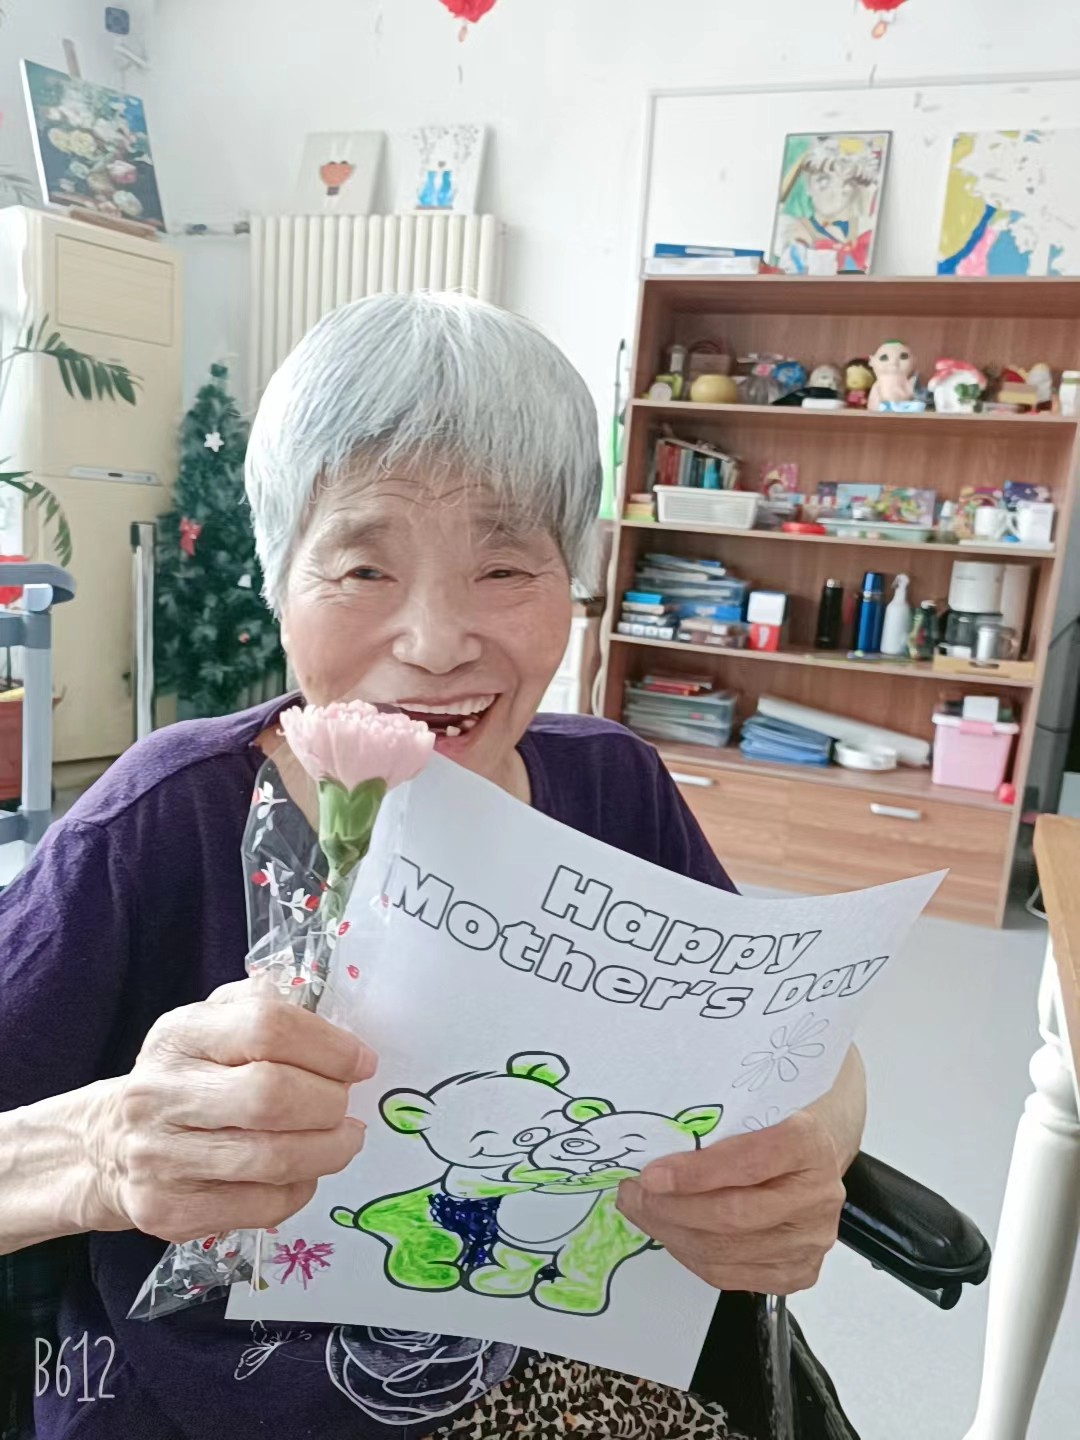 Happy
Mother's Day
B612